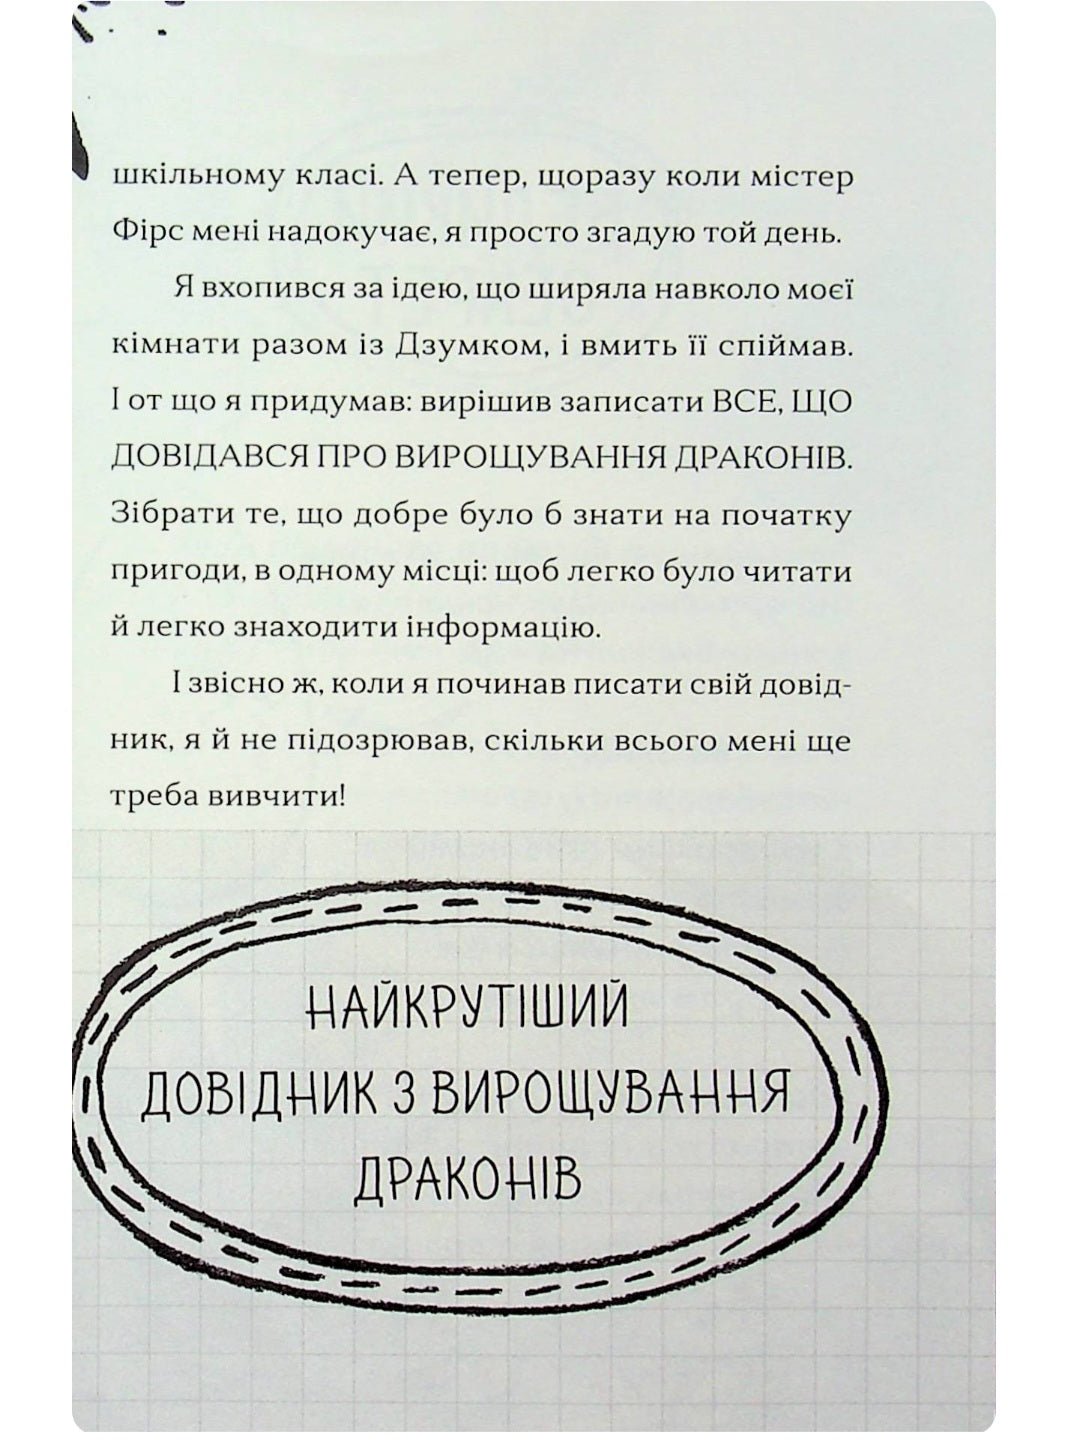 шкільному класі. А тепер, щоразу коли містер
Фірс мені надокучає, я просто згадую той день.
Я вхопився за ідею, що ширяла навколо моєї
кімнати разом із Дзумком, і вмить її спіймав.
І от що я придумав: вирішив записати ВСЕ, ЩО
ДОВІДАВСЯ ПРО ВИРОЩУВАННЯ ДРАКОНІВ.
Зібрати те, що добре було б знати на початку
пригоди, в одному місці: щоб легко було читати
й легко знаходити інформацію.
І звісно ж, коли я починав писати свій довід-
ник, я й не підозрював, скільки всього мені ще
треба вивчити!
НАЙКРУТІШИЙ
ДОВІДНИК З ВИРОЩУВАННЯ
ДРАКОНІВ